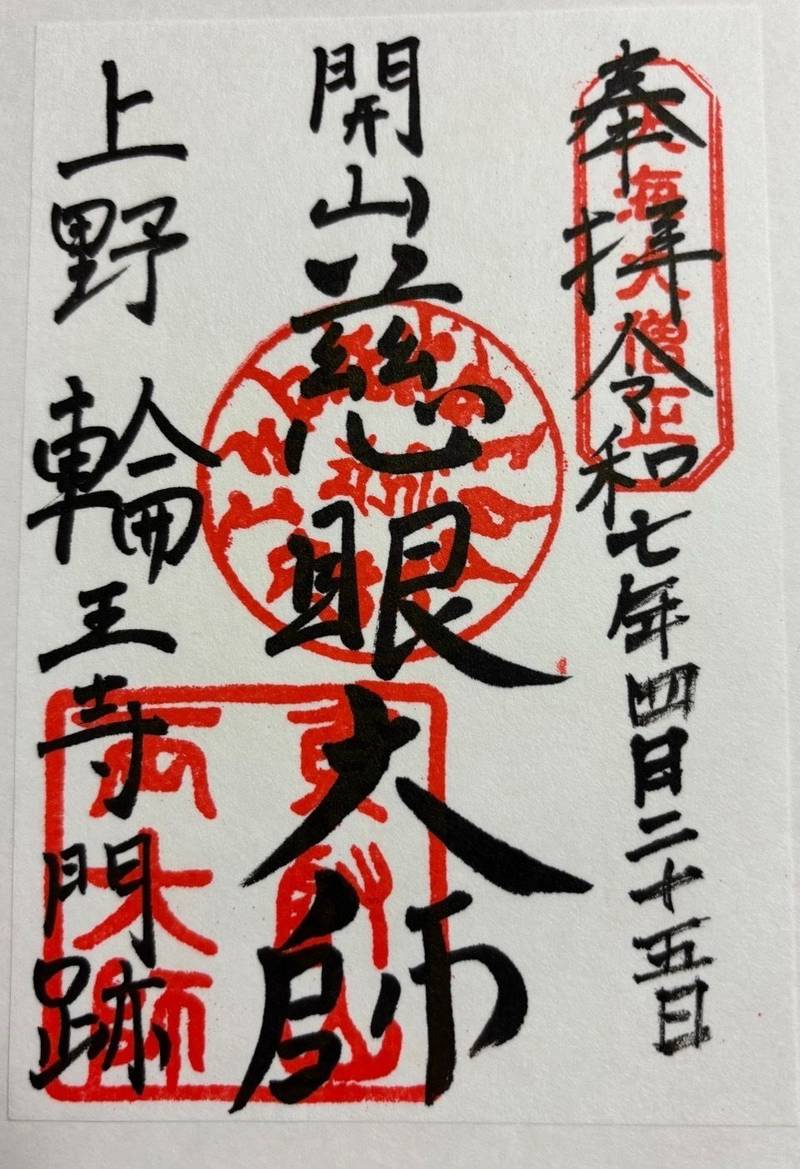 奉拝 令和七年四月二十五日
天海大僧正
開山 慈眼大師
上野 輪王寺門跡
両大師